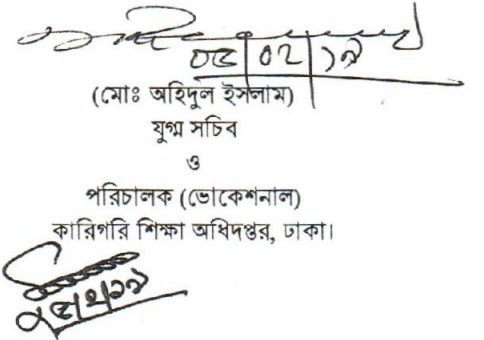 ০৫|০২|১৯
(মোঃ অহিদুল ইসলাম)
যুগ্ম সচিব
ও
পরিচালক (ভোকেশনাল)
কারিগরি শিক্ষা অধিদপ্তর, ঢাকা।